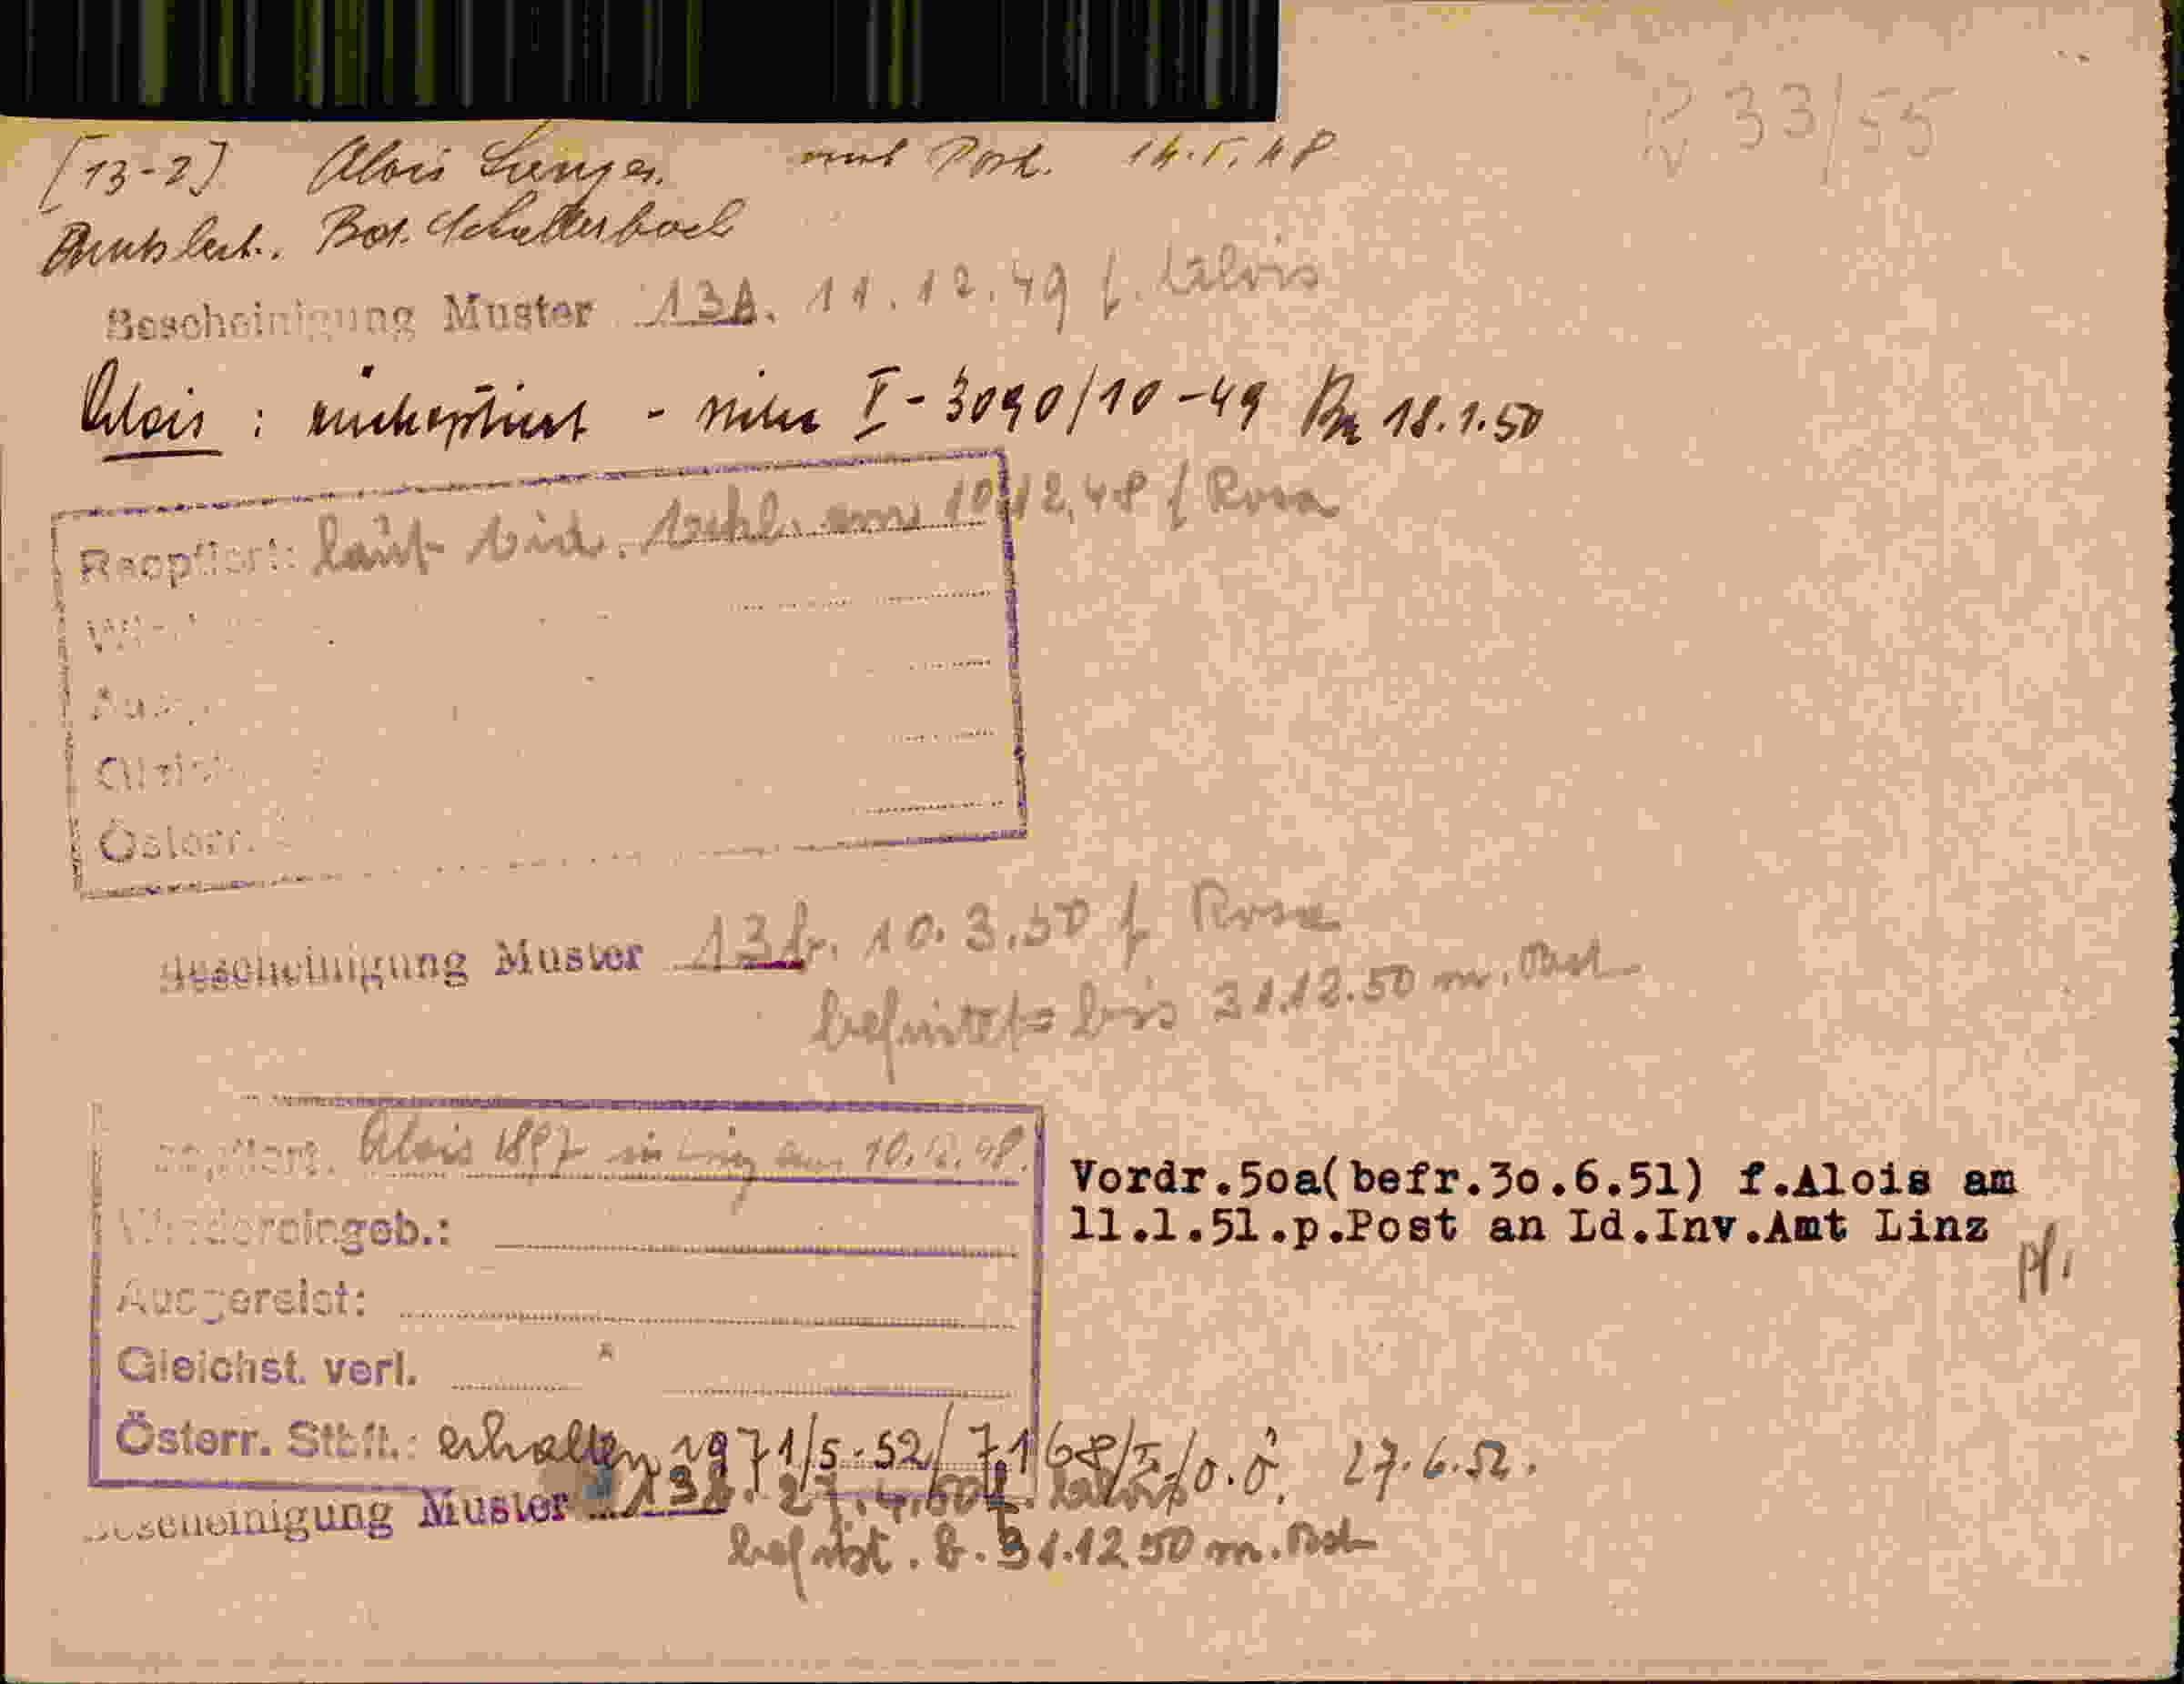 R 33/55
[13-2] Alois Lenger. mit Post. 14.5.48
Bad. Schallerbach
Bescheinigung Muster 13A. 11.12.49 f. Alois
Alois : rückoptiert - I-3090/10-49 18.1.50
Reoptiert: laut am 10.12.48 f Rosa
Österr.
Bescheinigung Muster 13b. 10.3.50 f Rosa
befristet bis 31.12.50 m. Post
Alois 1897 in Linz am 10.12.48.
Wiedereingeb.:
Ausgereist:
Gleichst. verl.
Österr. Stbft.: erhalten 1971/5-52/7168/I/o.ö. 27.6.52.
Vordr.5oa(befr.3o.6.51) f.Alois am
11.1.51.p.Post an Ld.Inv.Amt Linz
pf.
Bescheinigung Muster 13b. 27.4.50 f. Alois
befrist. b. 31.12.50 m. Post